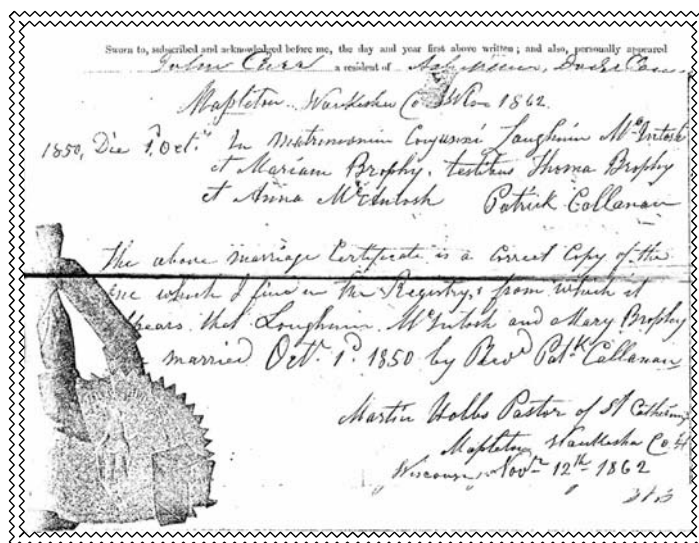 Sworn to, subscribed and acknowledged before me, the day and year first above written; and also, personally appeared
a resident of
Mapleton Waukesha Co 1862
1850, Die 1º Octr In Matrimonium Conjunxi Laughnin McIntosh
et Mariam Brophy, testibus Thoma Brophy
et Anna McIntosh Patrick Callanan
The above marriage Certificate is a Correct Copy of the
one which I find in the Registry, & from which it
appears that Loughnin McIntosh and Mary Brophy
married Octr 1º 1850 by Revd Patk Callanan
Martin Hobbs Pastor of St Catherine
Mapleton Waukesha Co
Wisconsin Novr 12th 1862